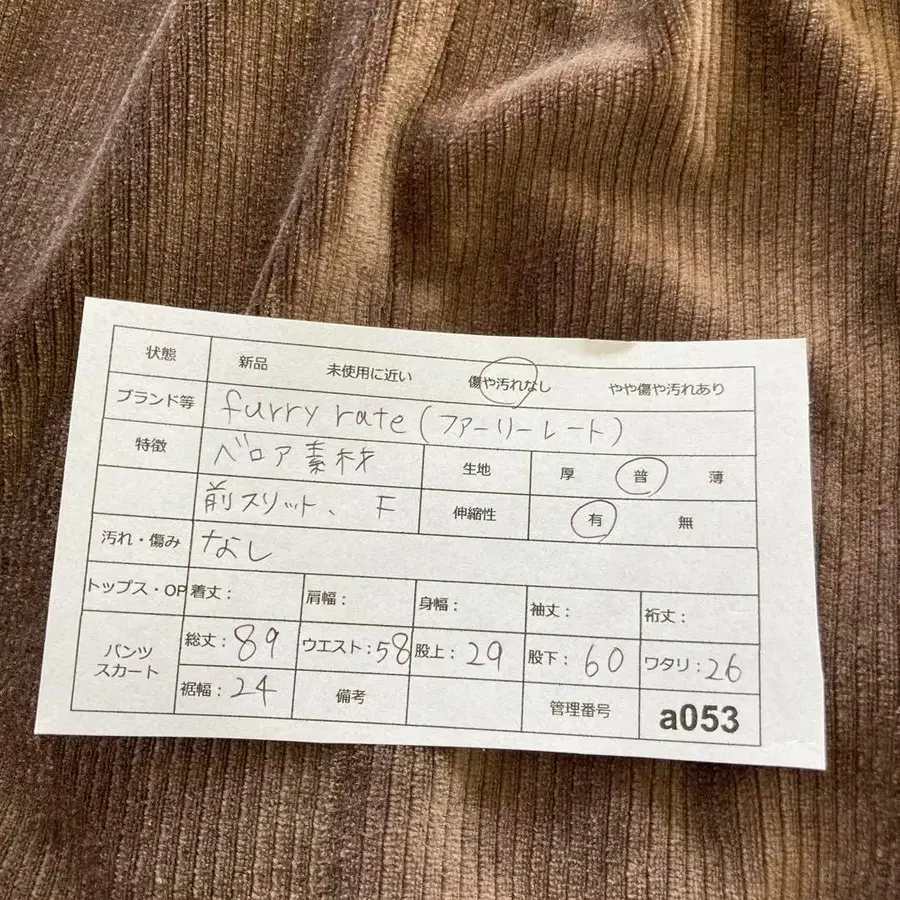 状態 新品 未使用に近い 傷や汚れなし やや傷や汚れあり
ブランド等 furry rate(ファーリーレート)
特徴 ベロア素材 生地 厚 普 薄
前スリット、F 伸縮性 有 無
汚れ・傷み なし
トップス・OP 着丈: 肩幅: 身幅: 袖丈: 裄丈:
パンツ スカート 総丈:89 ウエスト:58 股上:29 股下:60 ワタリ:26
裾幅:24 備考 管理番号 a053